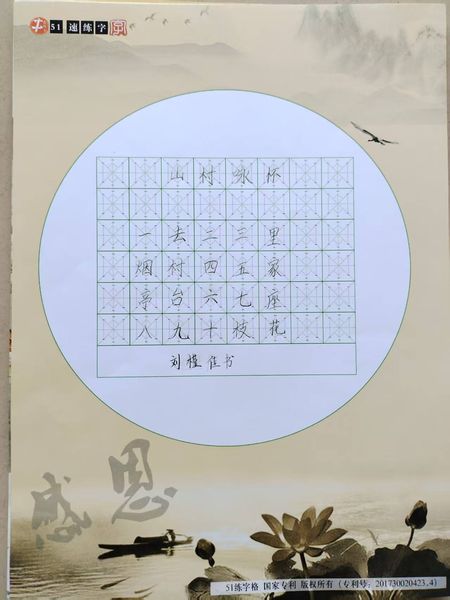 51速练字
山村咏怀
一去二三里
烟村四五家
亭台六七座
八九十枝花
刘槿佳书
感恩
51练字格 国家专利 版权所有（专利号：201730020423.4）